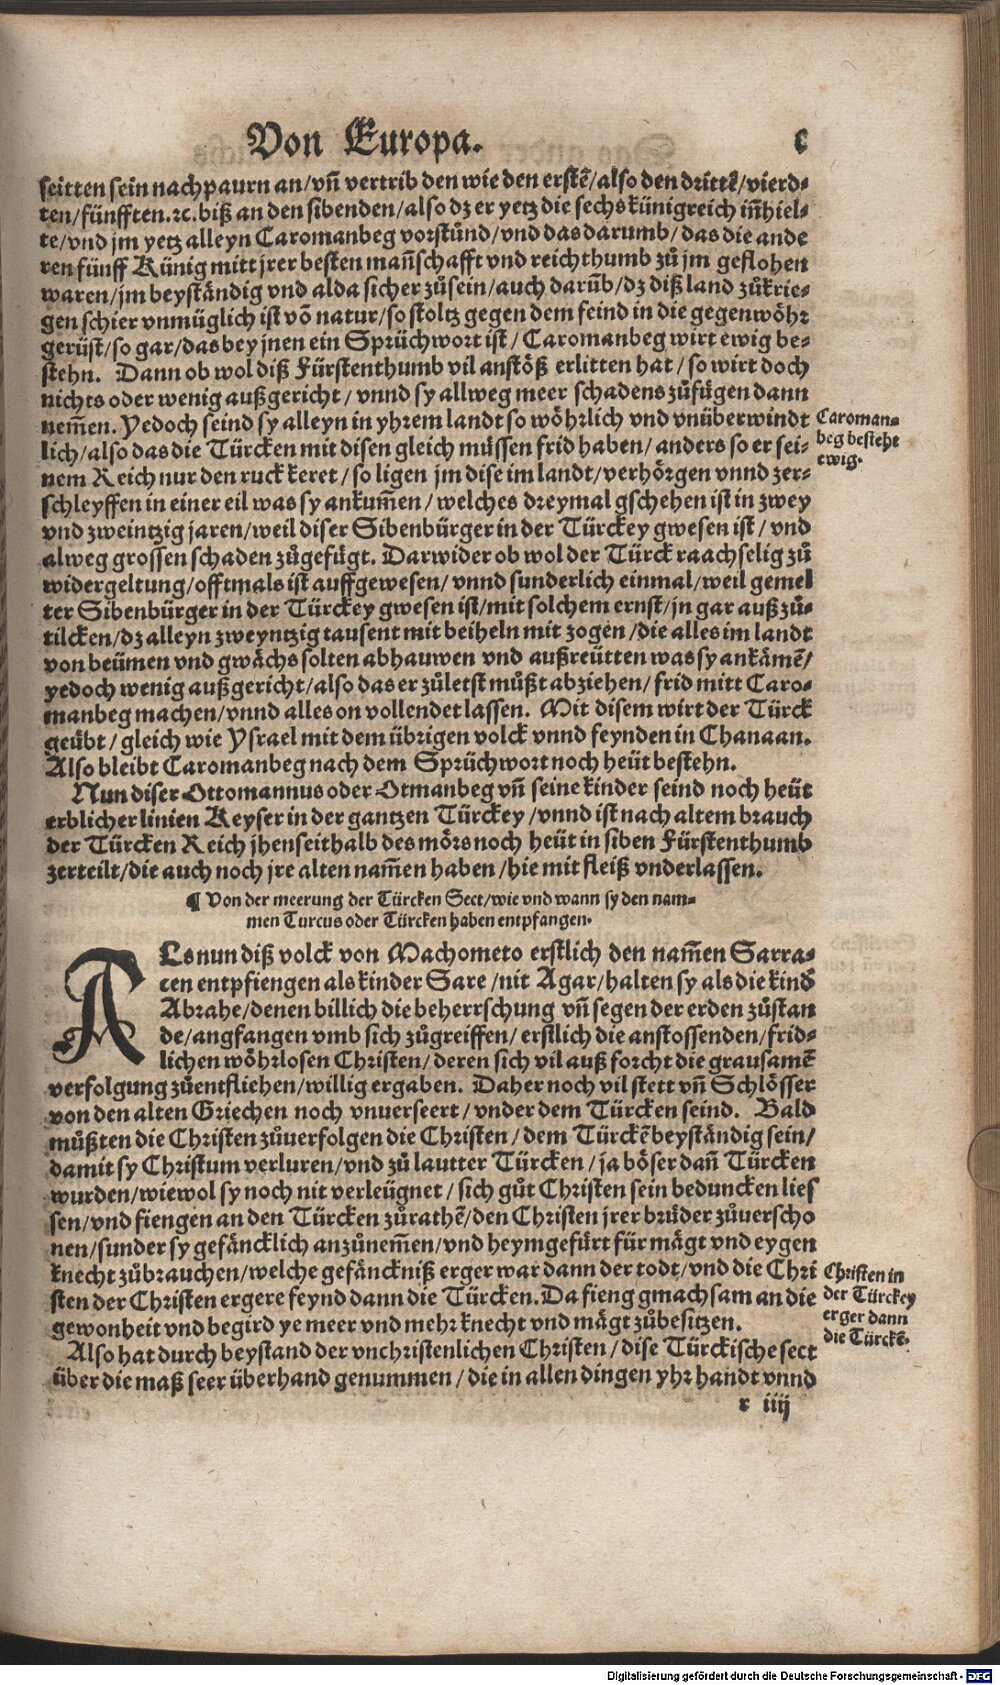 Von Europa.
c
seitten sein nachpaurn an/vñ vertrib den wie den erstẽ/also den drittẽ/vierd-
ten/fünfften.ꝛc.biß an den sibenden/also dz er yetz die sechs künigreich iñhiel-
te/vnd jm yetz alleyn Caromanbeg vorstůnd/vnd das darumb/das die ande
ren fünff Künig mitt jrer besten mañschafft vnd reichthumb zů jm geflohen
waren/jm beyständig vnd alda sicher zůsein/auch darũb/dz diß land zůkrie-
gen schier vnmüglich ist võ natur/so stoltz gegen dem feind in die gegenwöhr
gerüst/so gar/das bey jnen ein Sprüchwort ist/Caromanbeg wirt ewig be-
stehn. Dann ob wol diß Fürstenthumb vil anstöß erlitten hat/so wirt doch
nichts oder wenig außgericht/vnnd sy allweg meer schadens zůfůgen dann
nem̃en. Yedoch seind sy alleyn in yhrem landt so wöhrlich vnd vnüberwindt
lich/also das die Türcken mit disen gleich müssen frid haben/anders so er sei-
nem Reich nur den ruck keret/so ligen jm dise im landt/verhörgen vnnd zer-
schleyffen in einer eil was sy ankum̃en/welches dreymal gschehen ist in zwey
vnd zweintzig jaren/weil diser Sibenbürger in der Türckey gwesen ist/vnd
alweg grossen schaden zůgefůgt. Darwider ob wol der Türck raachselig zů
widergeltung/offtmals ist auffgewesen/vnnd sunderlich einmal/weil gemel
ter Sibenbürger in der Türckey gwesen ist/mit solchem ernst/jn gar auß zů-
tilcken/dz alleyn zweyntzig tausent mit beiheln mit zogen/die alles im landt
von beümen vnd gwächs solten abhauwen vnd außreütten was sy ankämẽ/
yedoch wenig außgericht/also das er zůletst můßt abziehen/frid mitt Caro-
manbeg machen/vnnd alles on vollendet lassen. Mit disem wirt der Türck
geübt/gleich wie Ysrael mit dem übrigen volck vnnd feynden in Chanaan.
Also bleibt Caromanbeg nach dem Sprüchwort noch heüt bestehn.
Nun diser Ottomannus oder Otmanbeg vñ seine kinder seind noch heüt
erblicher linien Keyser in der gantzen Türckey/vnnd ist nach altem brauch
der Türcken Reich jhenseithalb des mörs noch heüt in siben Fürstenthumb
zerteilt/die auch noch jre alten nam̃en haben/hie mit fleiß vnderlassen.
Caroman-
beg besteht
ewig.
¶ Von der meerung der Türcken Sect/wie vnd wann sy den nam-
men Turcus oder Türcken haben entpfangen.
ALs nun diß volck von Machometo erstlich den nam̃en Sarra-
cen entpfiengen als kinder Sare/nit Agar/halten sy als die kind̃
Abrahe/denen billich die beherrschung vñ segen der erden zůstan
de/angfangen vmb sich zůgreiffen/erstlich die anstossenden/frid-
lichen wöhrlosen Christen/deren sich vil auß forcht die grausamẽ
verfolgung zůentfliehen/willig ergaben. Daher noch vil stett vñ Schlösser
von den alten Griechen noch vnuerseert/vnder dem Türcken seind. Bald
můßten die Christen zůuerfolgen die Christen/dem Türckẽ beyständig sein/
damit sy Christum verluren/vnd zů lautter Türcken/ja böser dañ Türcken
wurden/wiewol sy noch nit verleügnet/sich gůt Christen sein beduncken lies
sen/vnd fiengen an den Türcken zůrathẽ/den Christen jrer brüder zůuerscho
nen/sunder sy gefäncklich anzůnem̃en/vnd heymgefürt für mägt vnd eygen
knecht zůbrauchen/welche gefänckniß erger war dann der todt/vnd die Chri
sten der Christen ergere feynd dann die Türcken. Da fieng gmachsam an die
gewonheit vnd begird ye meer vnd mehr knecht vnd mägt zůbesitzen.
Christen in
der Türckey
erger dann
die Türckẽ.
Also hat durch beystand der vnchristenlichen Christen/dise Türckische sect
über die maß seer überhand genummen/die in allen dingen yhr handt vnnd
r iiij
Digitalisierung gefördert durch die Deutsche Forschungsgemeinschaft - DFG